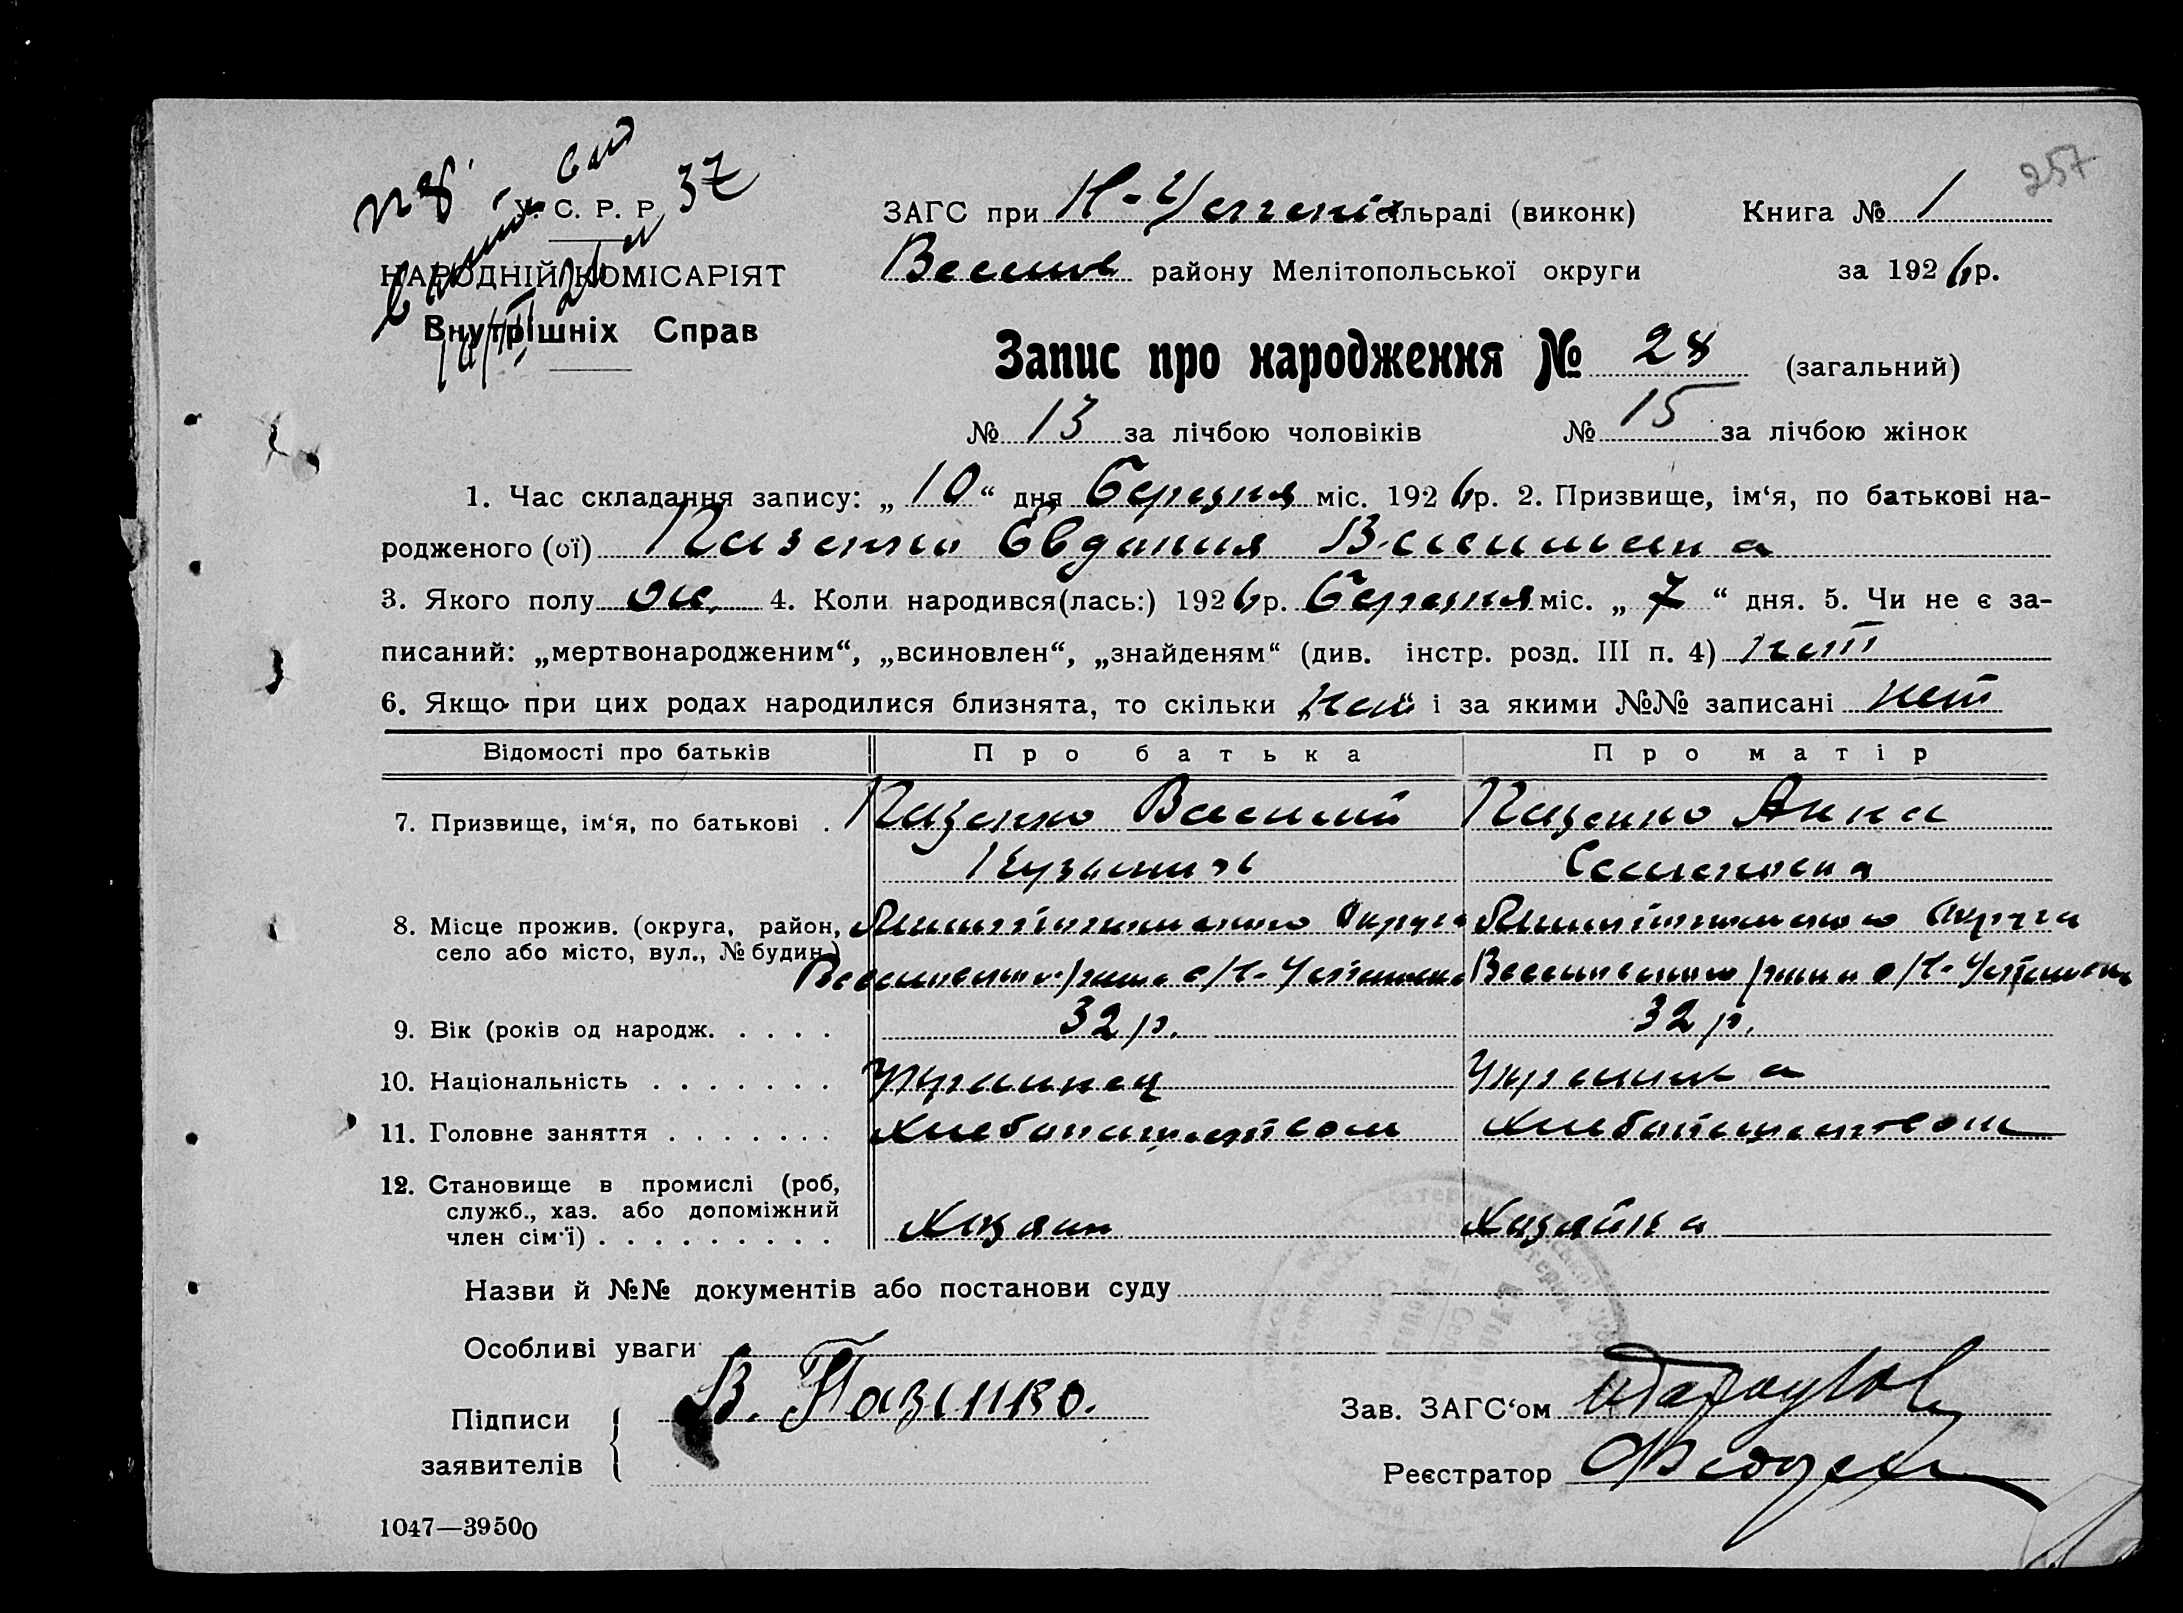 257
№ 8
37
У. С. Р. Р.
НАРОДНІЙ КОМІСАРІЯТ
Внутрішніх Справ
ЗАГС при сільраді (виконк) Книга № 1
Весел району Мелітопольської округи за 1926 р.
Запис про народження № 28 (загальний)
№ 13 за лічбою чоловіків № 15 за лічбою жінок
1. Час складання запису: „ 10 “ дня Березня міс. 1926 р. 2. Призвище, ім‘я, по батькові на-
родженого (ої) Пазенко Евдокия Васильевна
3. Якого полу ж. 4. Коли народився(лась:) 1926 р. Березня міс. „ 7 “ дня. 5. Чи не є за-
писаний: „мертвонародженим“, „всиновлен“, „знайденям“ (див. інстр. розд. III п. 4) нет
6. Якщо при цих родах народилися близнята, то скільки „нет“ і за якими №№ записані нет
Відомості про батьків Про батька Про матір
7. Призвище, ім‘я, по батькові . Пазенко Василий Пазенко Анна
Кузьмич Семеновна
8. Місце прожив. (округа, район, Округа Округа
село або місто, вул., № будин.)
9. Вік (років од народж. . . . . 32 р. 32 р.
10. Національність . . . . . . . Украинец Украинка
11. Головне заняття . . . . . . . Хлебопашеством Хлебопашеством
12. Становище в промислі (роб,
служб., хаз. або допоміжний
член сім‘ї) . . . . . . . . . Хазяин Хазяйка
Назви й №№ документів або постанови суду
Особливі уваги
Підписи В. Пазенко. Зав. ЗАГС‘ом
заявителів Реєстратор
1047—39500